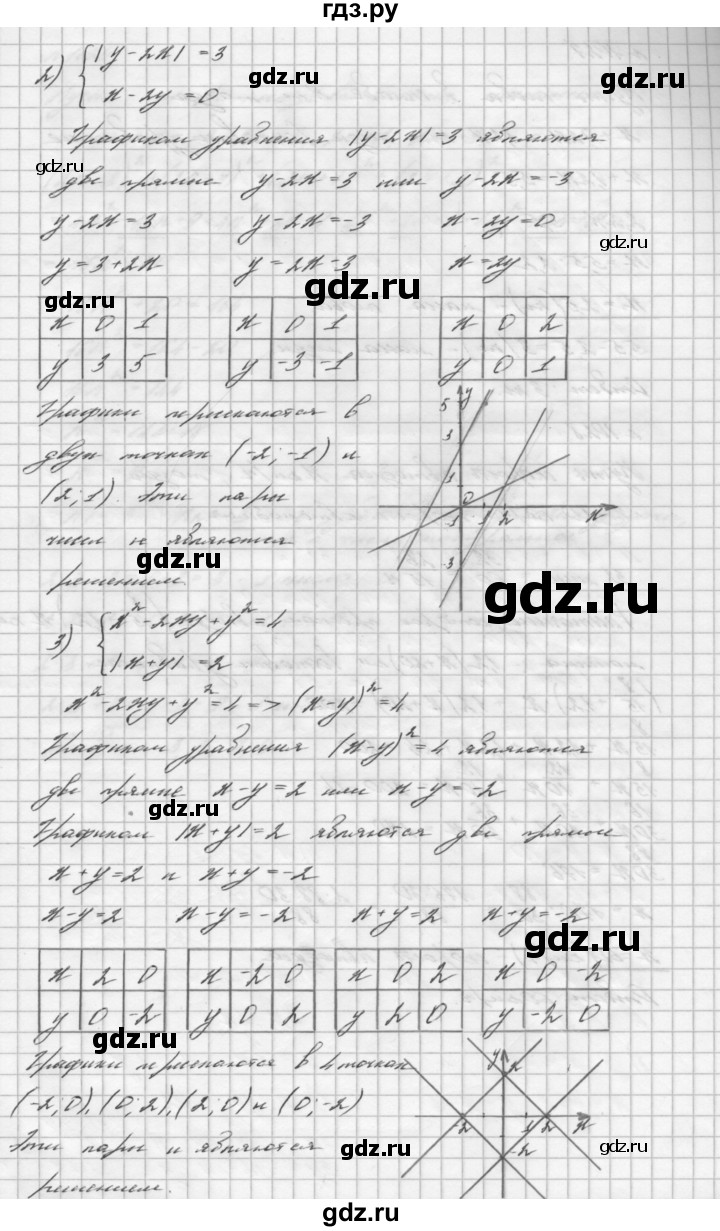 гдз.ру
2) { |y-2x| = 3
x-2y = 0
Графиком уравнения |y-2x|=3 являются
две прямые y-2x=3 или y-2x=-3
y-2x=3 y-2x=-3 x-2y=0
y=3+2x y=2x-3 x=2y
x 0 1 x 0 1 x 0 2
y 3 5 y -3 -1 y 0 1
Графики пересекаются в
двух точках (-2;-1) и
(2;1). Эти пары
чисел и являются
решением.
5 y
3
1
0
-1 1 2 x
-3
3) { x²-2xy+y²=4
|x+y| =2
x²-2xy+y²=4 => (x-y)²=4
Графиком уравнения (x-y)²=4 являются
две прямые x-y=2 или x-y=-2
Графиком |x+y|=2 являются две прямые
x+y=2 и x+y=-2
x-y=2 x-y=-2 x+y=2 x+y=-2
x 2 0 x -2 0 x 0 2 x 0 -2
y 0 -2 y 0 2 y 2 0 y -2 0
Графики пересекаются в 4 точках
(-2;0),(0;2),(2;0) и (0;-2)
Эти пары и являются
решением.
y 2
-2 2 x
-2
gdz.ru
gdz.ru
gdz.ru
gdz.ru
gdz.ru
gdz.ru
gdz.ru
gdz.ru
gdz.ru
gdz.ru
gdz.ru
gdz.ru
gdz.ru
gdz.ru